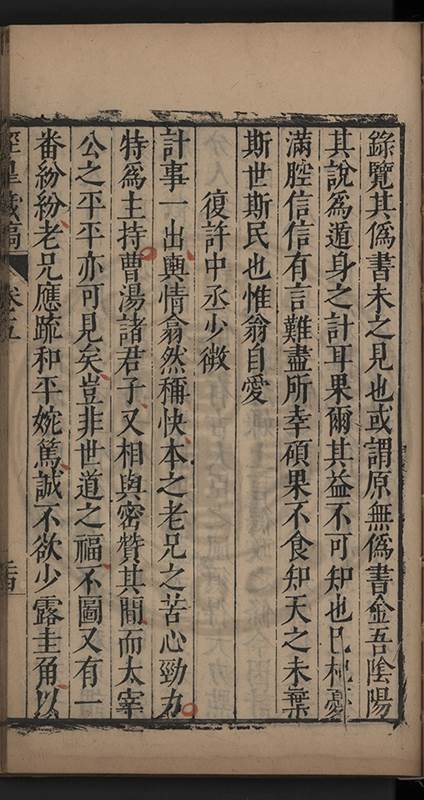 錄覽其僞書未之見也或謂原無僞書金吾陰陽
其說爲遁身之計耳果爾其益不可知也已杞憂
滿腔信信有言難盡所幸碩果不食知天之未棄
斯世斯民也惟翁自愛
復許中丞少微
計事一出輿情翕然稱快本之老兄之苦心勁力
特爲主持曹湯諸君子又相與密贊其間而太宰
公之平平亦可見矣豈非世道之福不圖又有一
番紛紛老兄應疏和平婉篤誠不欲少露圭角以
經皐藏稿 卷五 二百